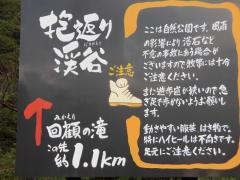 抱返り
だきかえり
渓谷
ご注意
みかえり
回顧の滝
この先
約1.1km
ここは自然公園です。風雨
の影響により落石など
不慮の事故にあう場合が
ございますので散策には十分
ご注意ください。
また遊歩道が狭いので急
ぎ足で歩かないようお願いし
ます。
動きやすい服装はき物で。
特にハイヒールは不向きです。
足元にご注意ください。